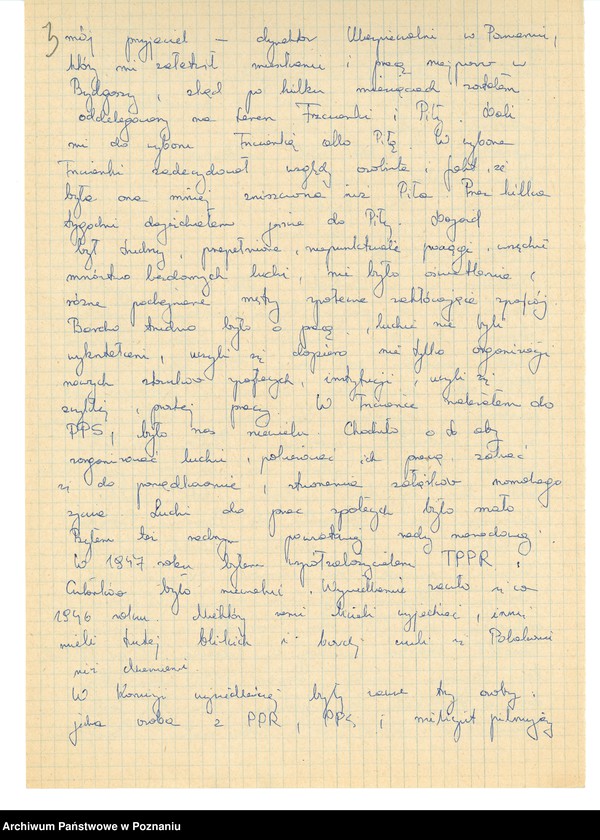 3 mój przyjaciel – dyrektor Ubezpieczalni w Poznaniu,
który mi załatwił mieszkanie i pracę najpierw w
Bydgoszczy, skąd po kilku miesiącach zostałem
oddelegowany na teren Trzcianki i Piły. Dali
mi do wyboru Trzciankę albo Piłę. W wyborze
Trzcianki zadecydował względy osobiste i fakt, że
była ona mniej zniszczona niż Piła. Przez kilka
tygodni dojeżdżałem jeszcze do Piły. Dojazd
był trudny, przepełnione, niepunktualne pociągi, wszędzie
mnóstwo bezdomnych ludzi, nie było oświetlenia,
różne podejrzane męty społeczne zakłócające spokój.
Bardzo trudno było o pracę, ludzie nie byli
wykształceni, uczyli się dopiero nie tylko organizacji
nowych społecznych, instytucji, uczyli się
zwykłej, prostej pracy. W Trzciance należałem do
PPS, było nas niewielu. Chodziło o to aby
zorganizować ludzi, pokierować ich pracą, zabrać
się do porządkowania, stworzenia zalążków normalnego
życia. Ludzi do prac społecznych było mało
Byłem też radnym powiatowej rady narodowej.
W 1947 roku byłem współzałożycielem TPPR.
Członków było niewielu. Wysiedlanie zaczęło się w
1946 roku. Niektórzy sami chcieli wyjechać, inni
mieli tutaj bliskich i bardziej czuli się Polakami
niż Niemcami.
W Komisji wysiedleńczej były zawsze trzy osoby:
jedna osoba z PPR, PPS i milicjant pilnujący
Archiwum Państwowe w Poznaniu